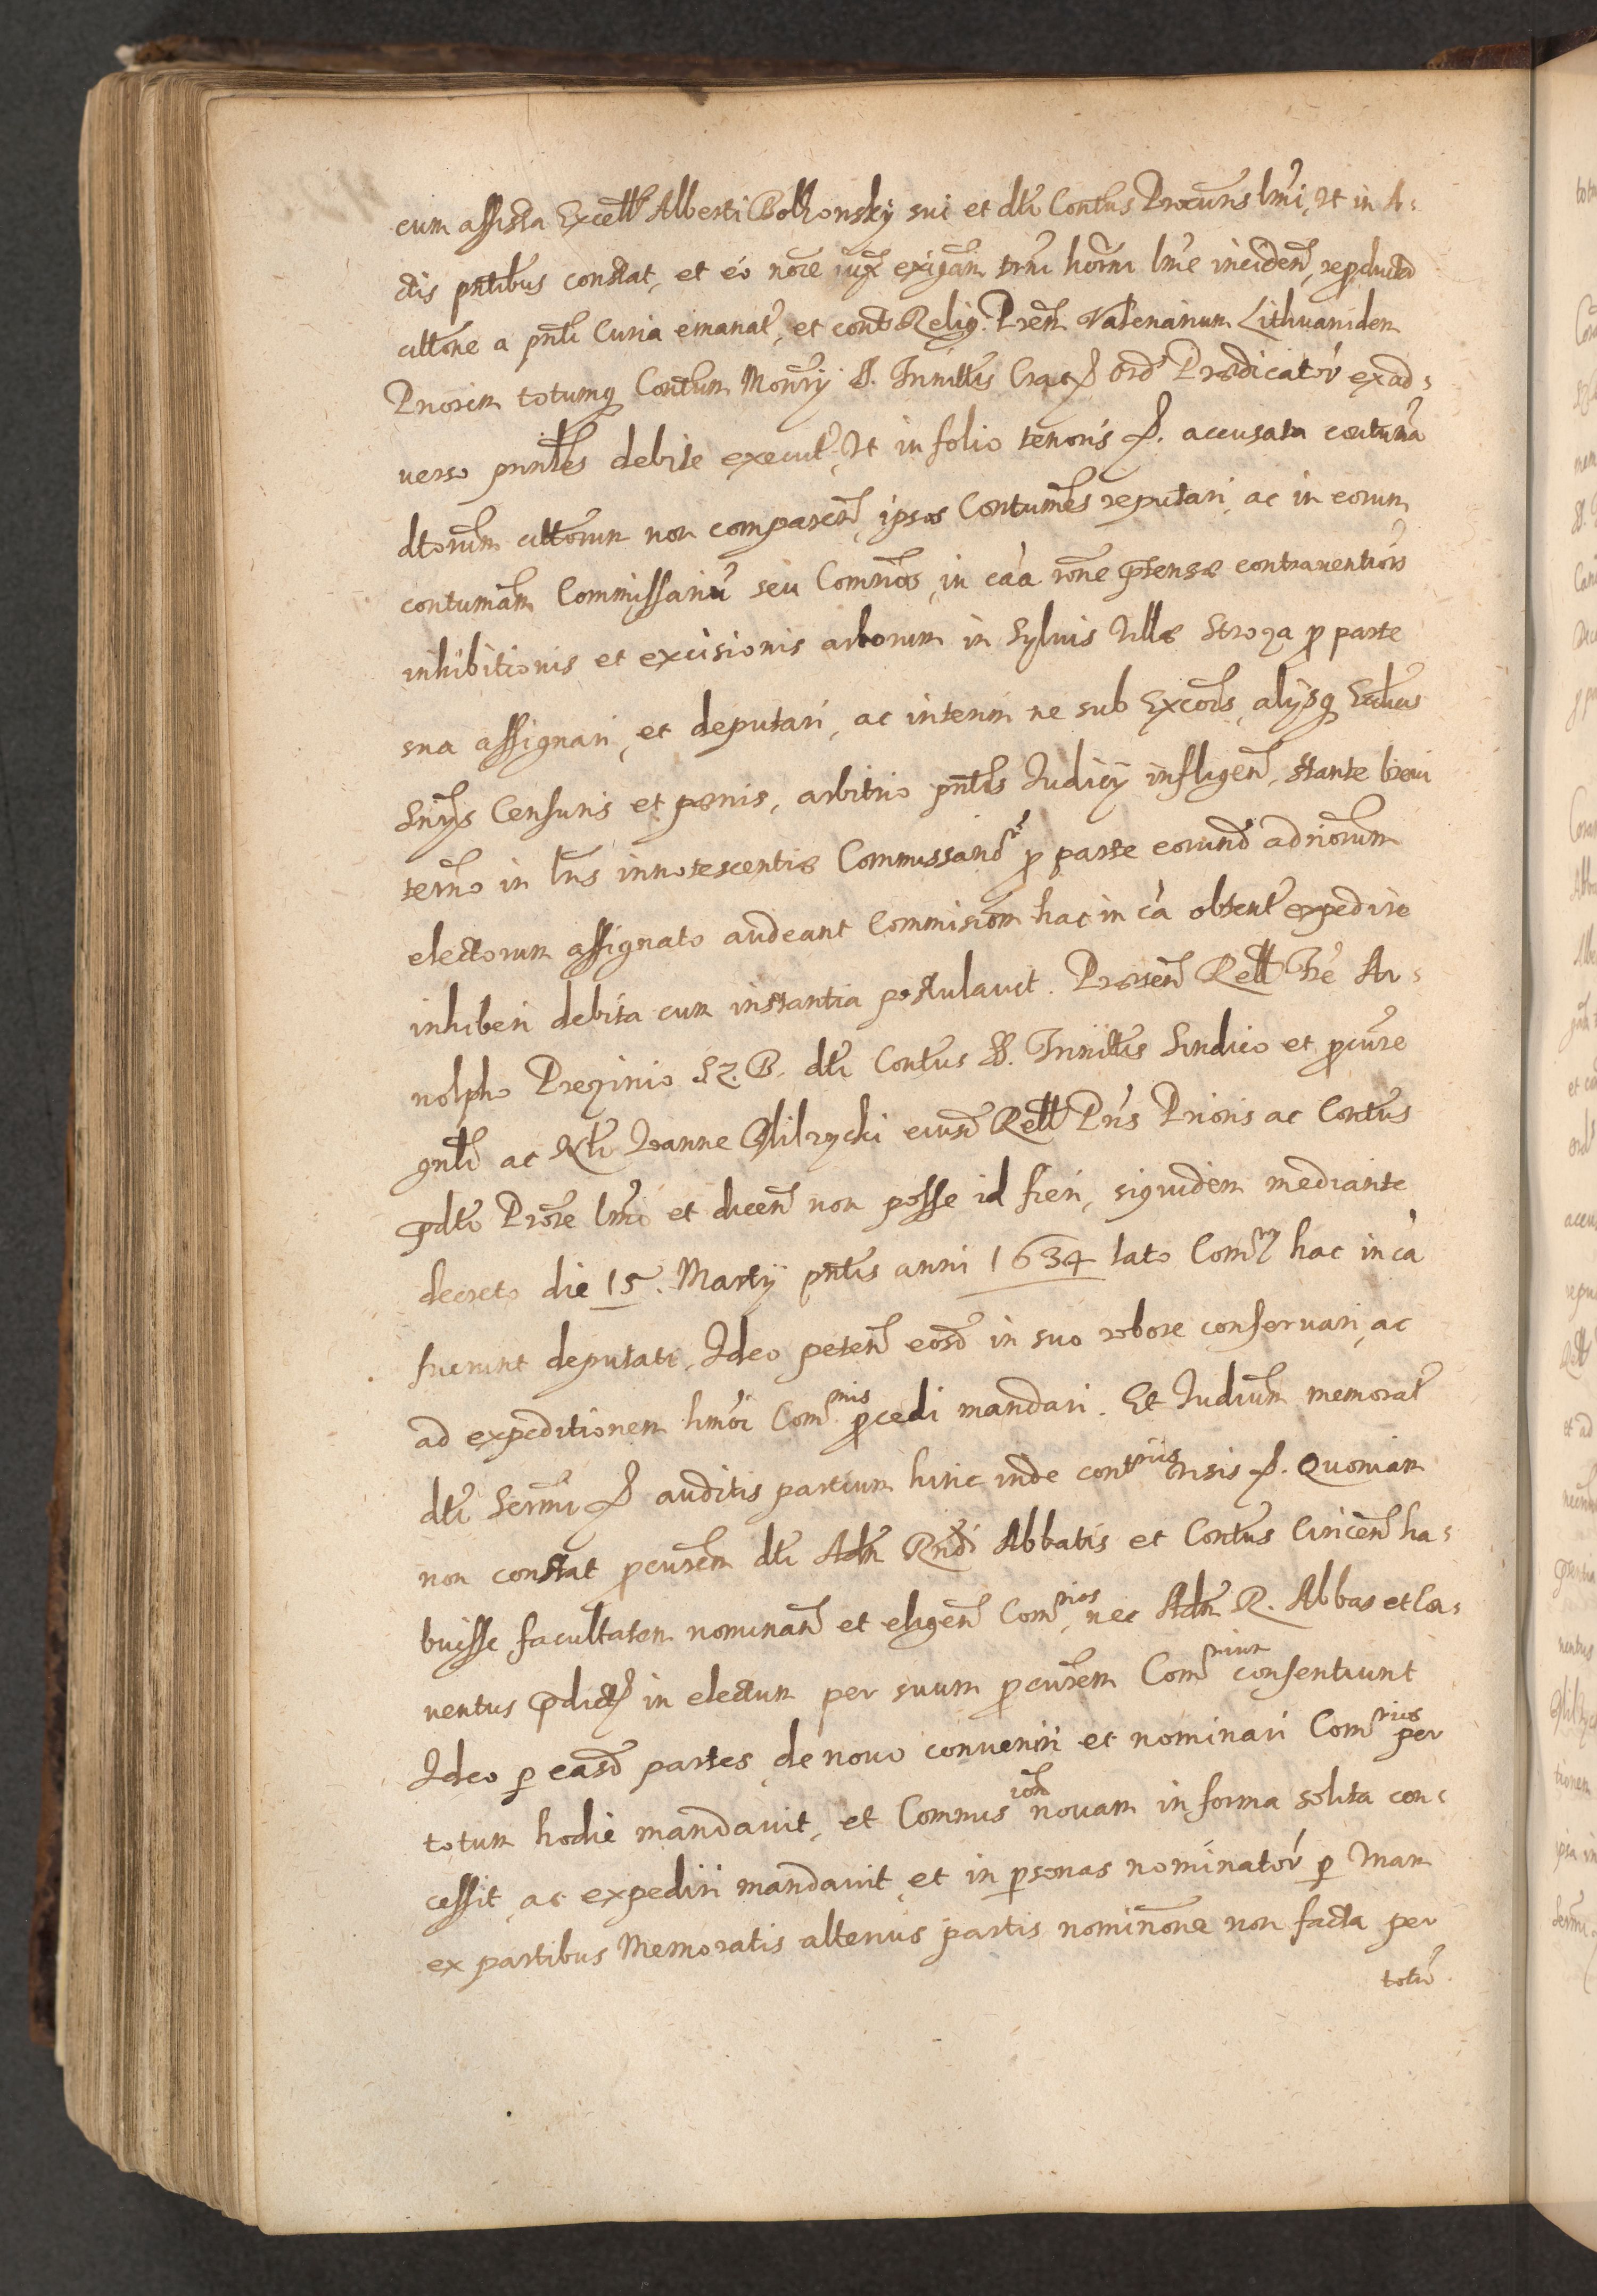 cum assista Excell Alberti Bolkonsky sui et dti Contus Procuris lmi, Ut in A-
ctis pntibus constat, et eo nore iux exigam trni horni lme inciden, reproducta
cittone a pnti Curia emanat, et cont Relig. Prem Valerianum Lithuanidem
Priorem totumq Contum Monrij S. Trinittis Crac ord Prædicator ex ad-
uerso pnntes debite execut, Ut in folio tenoris p. accusata contuma
dtorum cittorum non comparen, ipsos Contumes reputari, ac in eorum
contumam Commissariu seu Commos, in caa rone prtensæ contrauentiois
inhibitionis et excisionis arborum in Syluis Villæ Stroza p parte
sua assignari, et deputari, ac interim ne sub Excois, alijsq Ecclicis
Snijs Censuris et pænis, arbitrio pntis Iudicij infligen, stante breui
termo in lris innotescentiæ Commissarior p parte eorund adriorum
electorum assignato audeant Commisiom hac in ca obtent expedire
inhiberi debita cum instantia postulauit. Præsen Rell Fre Ar-
nolpho Prezinio Sz. B. dti Contus SS. Trinittis Sindico et pcure
gnli ac Nli Ioanne Glilzycki eiusd Rell Pris Prioris ac Contus
prdti Prore lmo et dicen non posse id fieri, siquidem mediante
decreto die 15. Martij pntis anni 1634 lato Comrij hac in ca
fuerunt deputati, Ideo peten eosd in suo robore conseruari, ac
ad expeditionem hmoi Comnis pcedi mandari. Et Iudium memorat
dti Sermi p auditis partium hinc inde contnijs visis p. Quoniam
non constat pcurem dti Adm Rndi Abbatis et Contus Ciricen ha-
buisse facultatem nominan et eligen Comrios, nec Adm R. Abbas et Con-
uentus prdict in electum per suum pcurem Comrium consentiunt
Ideo p easd partes de nouo conueniri et nominari Comrios per
totum hodie mandauit, et Commisiom nouam in forma solita con-
cessit, ac expediri mandauit, et in psonas nominator p vnam
ex partibus Memoratis alterius partis nominone non facta per
totu